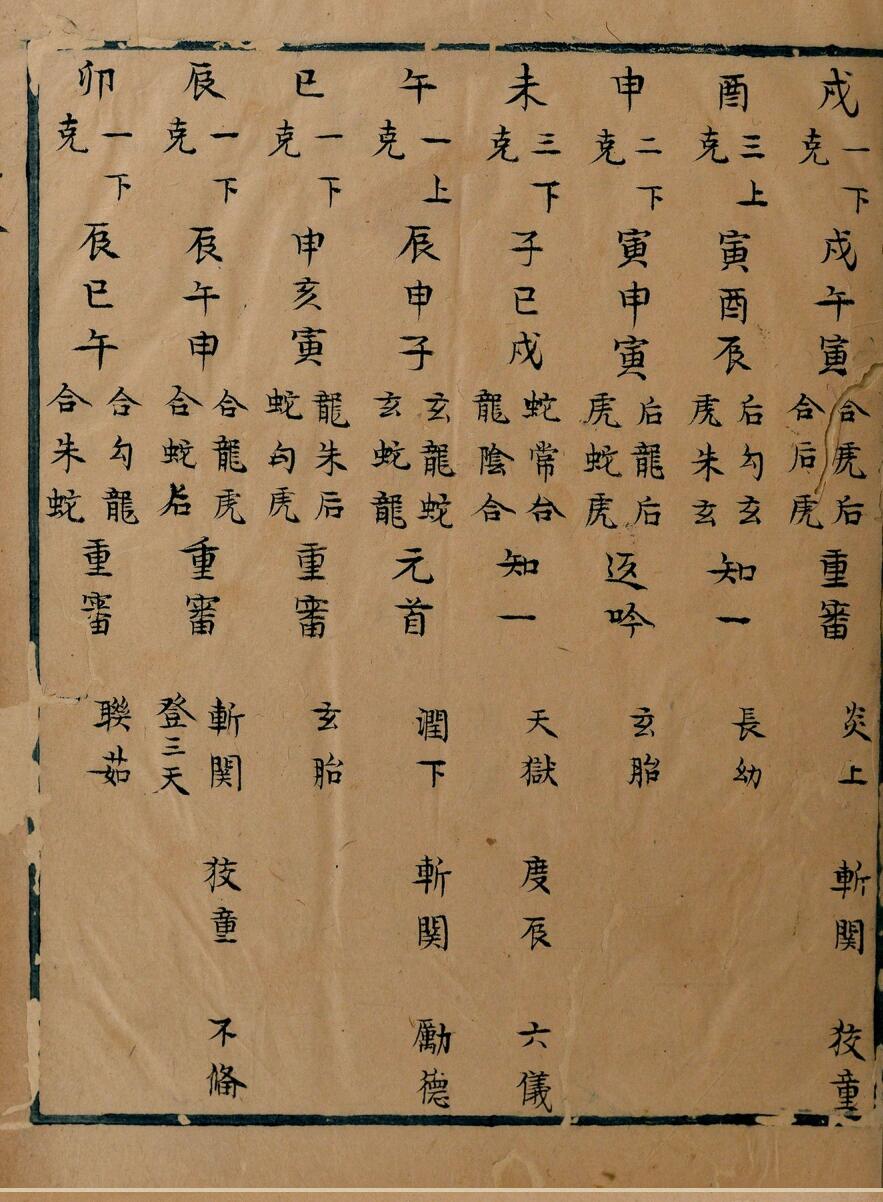 戌 一下克 戌午寅 合虎后 合后虎 重審 炎上 斬関 狡童
酉 三上克 寅酉辰 后勾玄 虎朱玄 知一 長幼
申 二下克 寅申寅 后龍后 虎蛇虎 返吟 玄胎
未 三下克 子巳戌 蛇常合 龍陰合 知一 天獄 度辰 六儀
午 一上克 辰申子 玄龍蛇 玄蛇龍 元首 潤下 斬関 勵德
巳 一下克 申亥寅 龍朱后 蛇勾虎 重審 玄胎
辰 一下克 辰午申 合龍虎 合蛇后 重審 斬関 登三天 狡童 不俻
卯 一下克 辰巳午 合勾龍 合朱蛇 重審 聯茹